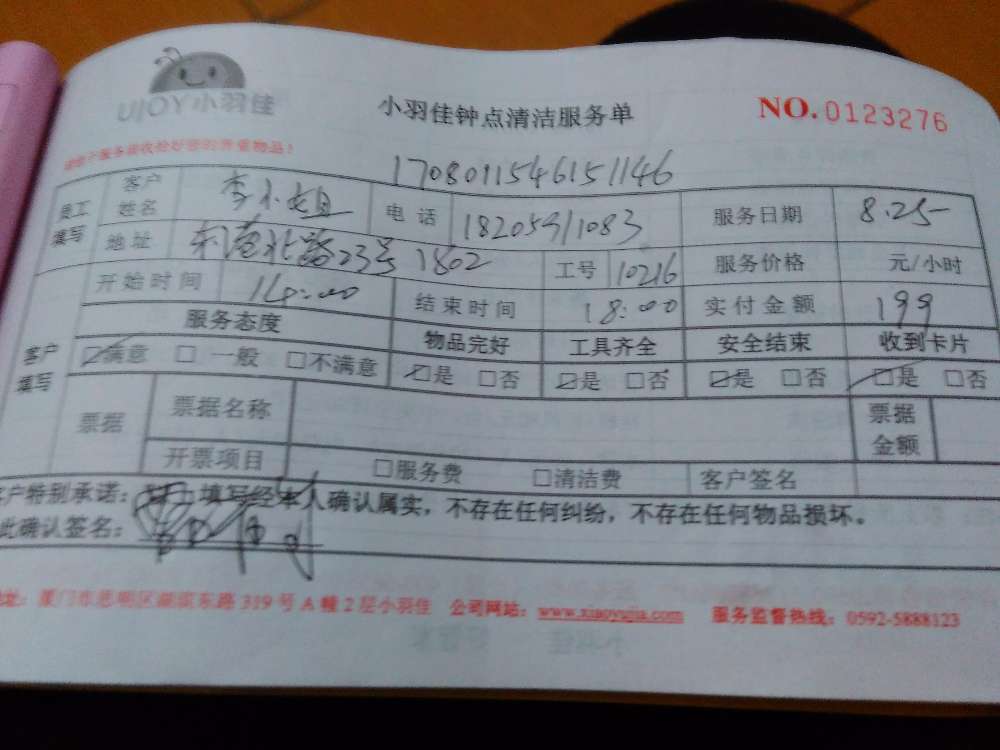 UJOY小羽佳
小羽佳钟点清洁服务单
NO.0123276
请给予服务前收拾好您的贵重物品！
1708011546151146
员工填写 客户姓名 李小姐 电话 18205911083 服务日期 8.25
地址 东港北路23号 1802 工号 10216 服务价格 元/小时
客户填写 开始时间 14:00 结束时间 18:00 实付金额 199
服务态度 物品完好 工具齐全 安全结束 收到卡片
☑满意 □一般 □不满意 ☑是 □否 ☑是 □否 ☑是 □否 ☑是 □否
票据 票据名称 票据金额
开票项目 □服务费 □清洁费 客户签名
客户特别承诺： 填写经本人确认属实，不存在任何纠纷，不存在任何物品损坏。
此确认签名：
地址：厦门市思明区湖滨东路319号A幢2层小羽佳 公司网站：www.xiaoyujia.com 服务监督热线：0592-5888123